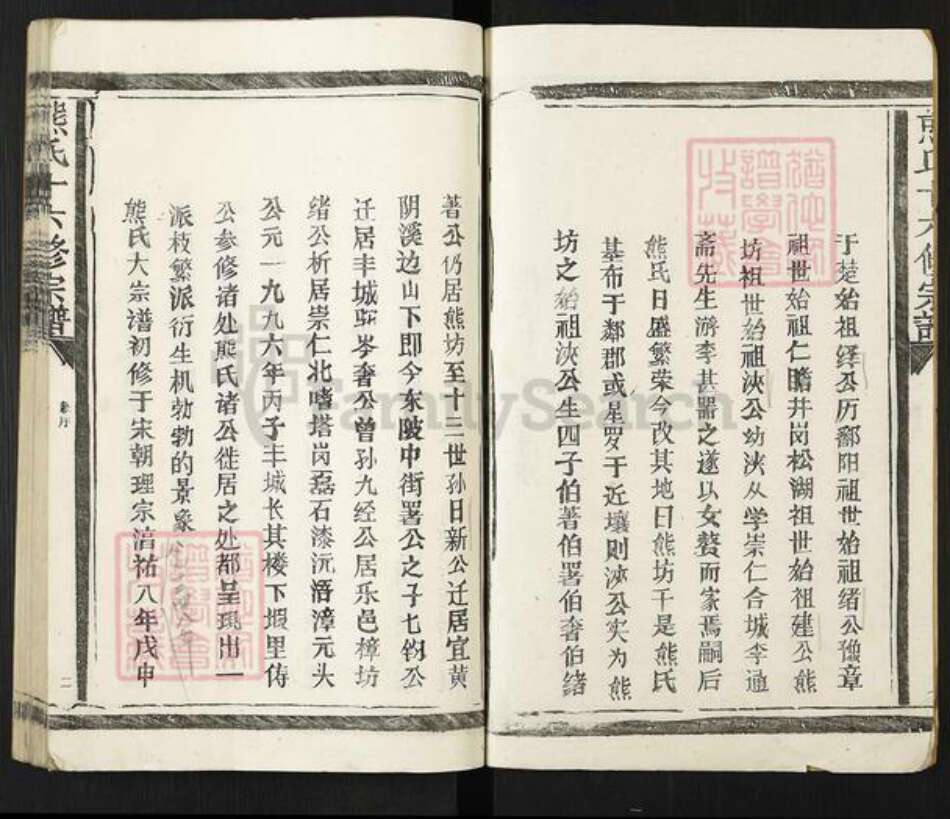 熊氏十六修宗譜
于楚始祖绎公历鄱阳祖世始祖绪公豫章
祖世始祖仁瞻井岗松湖祖世始祖建公熊
坊祖世始祖浃公幼浃从学崇仁合城李通
斋先生游李甚器之遂以女赘而家焉嗣后
熊氏日盛繁荣今改其地曰熊坊于是熊氏
基布于鄰郡或星罗于近壤则浃公实为熊
坊之始祖浃公生四子伯著伯署伯奢伯绪
著公仍居熊坊至十三世孙日新公迁居宜黄
阴溪边山下即今东陂中街署公之子七钧公
迁居丰城岑奢公曾孙九经公居乐邑樟坊
绪公析居崇仁北嗜塔岗磊石漆沅浯漳元头
公元一九九六年丙子丰城长其楼下塅里俦
公参修诸处熊氏诸公徙居之处都呈现出一
派枝繁派衍生机勃勃的景象
熊氏大崇谱初修于宋朝理宗淯祐八年戊申
熊氏十六修宗譜
序
二
FamilySearch